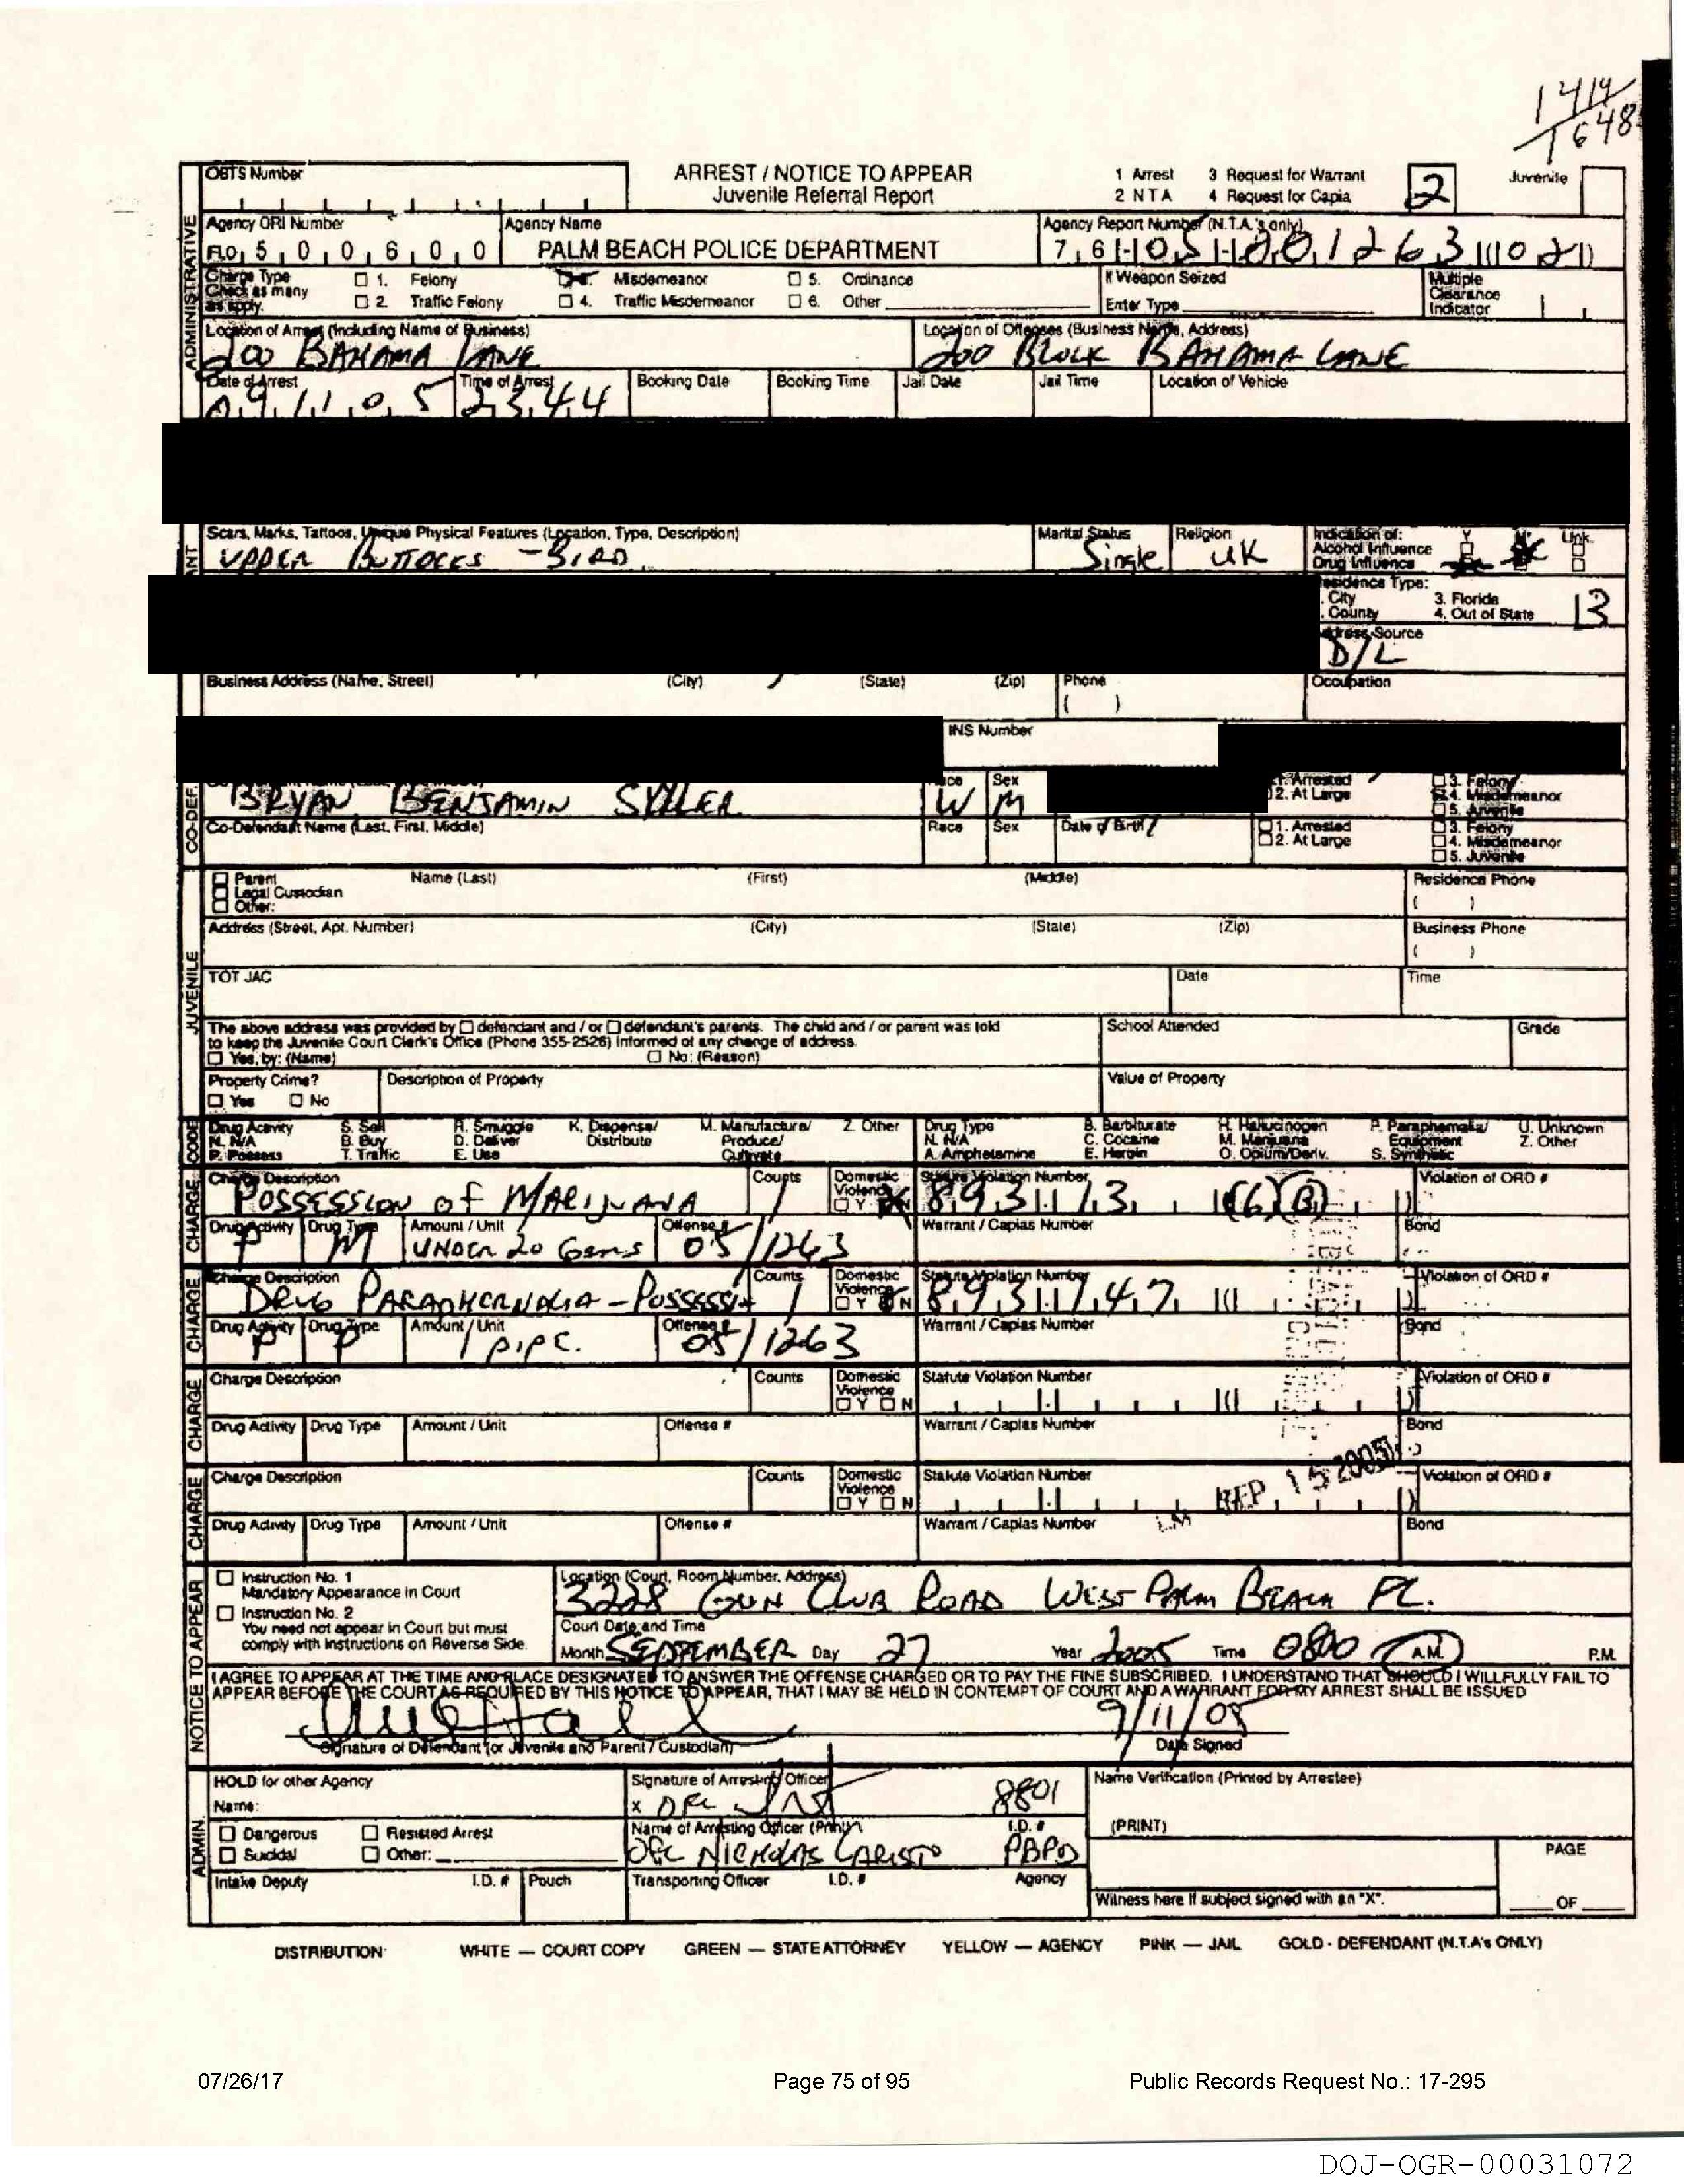 1414/1648
OBTS Number
ARREST / NOTICE TO APPEAR
Juvenile Referral Report
1 Arrest 3 Request for Warrant
2 NTA 4 Request for Capia
2
Juvenile
ADMINISTRATIVE
Agency ORI Number
FL0 5 0 0 6 0 0
Agency Name
PALM BEACH POLICE DEPARTMENT
Agency Report Number (N.T.A.'s only)
Charge Type
Check as many
as apply.
1. Felony Misdemeanor 5. Ordinance
2. Traffic Felony 4. Traffic Misdemeanor 6. Other
If Weapon Seized
Enter Type
Multiple
Clearance
Indicator
Location of Arrest (Including Name of Business)
200 BAHAMA LANE
Location of Offenses (Business Name, Address)
200 BLOCK BAHAMA LANE
Date of Arrest
0 9 1 1 0 5
Time of Arrest
2 3 4 4
Booking Date Booking Time Jail Date Jail Time Location of Vehicle
Scars, Marks, Tattoos, Unique Physical Features (Location, Type, Description)
UPPER BUTTOCKS - BIRD
Marital Status
Single
Religion
UK
Indication of: Y N Unk.
Alcohol Influence
Drug Influence
Residence Type:
City 3. Florida
County 4. Out of State
Address Source
D/L
Business Address (Name, Street) (City) (State) (Zip) Phone ( ) Occupation
INS Number
CO-DEF.
BRYAN BENJAMIN
Race W Sex M
1. Arrested 3. Felony
2. At Large 4. Misdemeanor
5. Juvenile
Co-Defendant Name (Last, First, Middle) Race Sex Date of Birth
1. Arrested 3. Felony
2. At Large 4. Misdemeanor
5. Juvenile
JUVENILE
Parent Name (Last) (First) (Middle) Residence Phone
Legal Custodian ( )
Other:
Address (Street, Apt. Number) (City) (State) (Zip) Business Phone
( )
TOT JAC Date Time
The above address was provided by defendant and / or defendant's parents. The child and / or parent was told
to keep the Juvenile Court Clerk's Office (Phone 355-2526) informed of any change of address.
Yes, by: (Name) No: (Reason)
School Attended Grade
Property Crime? Description of Property Value of Property
Yes No
CODE
Drug Activity S. Sell R. Smuggle K. Dispense/ M. Manufacture/ Z. Other Drug Type B. Barbiturate H. Hallucinogen P. Paraphernalia/ U. Unknown
N. N/A B. Buy D. Deliver Distribute Produce/ N. N/A C. Cocaine M. Marijuana Equipment Z. Other
P. Possess T. Traffic E. Use Cultivate A. Amphetamine E. Heroin O. Opium/Deriv. S. Synthetic
CHARGE
Charge Description
POSSESSION of MARIJUANA
Counts 1
Domestic Violence Y N
Statute Violation Number
893.13 (6)(B)
Violation of ORD #
Drug Activity P Drug Type M Amount / Unit UNDER 20 Gems Offense # 05/1263
Warrant / Capias Number Bond
CHARGE
Charge Description
DRUG PARAPHERNALIA - POSSESS
Counts 1
Domestic Violence Y N
Statute Violation Number
893.147
Violation of ORD #
Drug Activity P Drug Type P Amount / Unit 1 PIPE. Offense # 05/1263
Warrant / Capias Number Bond
CHARGE
Charge Description Counts Domestic Violence Y N Statute Violation Number Violation of ORD #
Drug Activity Drug Type Amount / Unit Offense # Warrant / Capias Number Bond
SEP 15 2005
CHARGE
Charge Description Counts Domestic Violence Y N Statute Violation Number Violation of ORD #
Drug Activity Drug Type Amount / Unit Offense # Warrant / Capias Number Bond
NOTICE TO APPEAR
Instruction No. 1
Mandatory Appearance in Court
Instruction No. 2
You need not appear in Court but must
comply with Instructions on Reverse Side.
Location (Court, Room Number, Address)
3228 GUN CLUB ROAD WEST PALM BEACH FL.
Court Date and Time
Month SEPTEMBER Day 27 Year 2005 Time 0800 A.M. P.M.
I AGREE TO APPEAR AT THE TIME AND PLACE DESIGNATED TO ANSWER THE OFFENSE CHARGED OR TO PAY THE FINE SUBSCRIBED. I UNDERSTAND THAT SHOULD I WILLFULLY FAIL TO
APPEAR BEFORE THE COURT AS REQUIRED BY THIS NOTICE TO APPEAR, THAT I MAY BE HELD IN CONTEMPT OF COURT AND A WARRANT FOR MY ARREST SHALL BE ISSUED
9/11/05
Signature of Defendant (or Juvenile and Parent / Custodian) Date Signed
ADMIN.
HOLD for other Agency
Name:
Signature of Arresting Officer
8801
Name Verification (Printed by Arrestee)
Dangerous Resisted Arrest
Suicidal Other:
Name of Arresting Officer (Print) I.D. #
OFC NICHOLAS CARISTO PBPD
(PRINT)
PAGE
Intake Deputy I.D. # Pouch Transporting Officer I.D. # Agency
Witness here if subject signed with an "X". OF
DISTRIBUTION: WHITE — COURT COPY GREEN — STATE ATTORNEY YELLOW — AGENCY PINK — JAIL GOLD - DEFENDANT (N.T.A's ONLY)
07/26/17 Page 75 of 95 Public Records Request No.: 17-295
DOJ-OGR-00031072